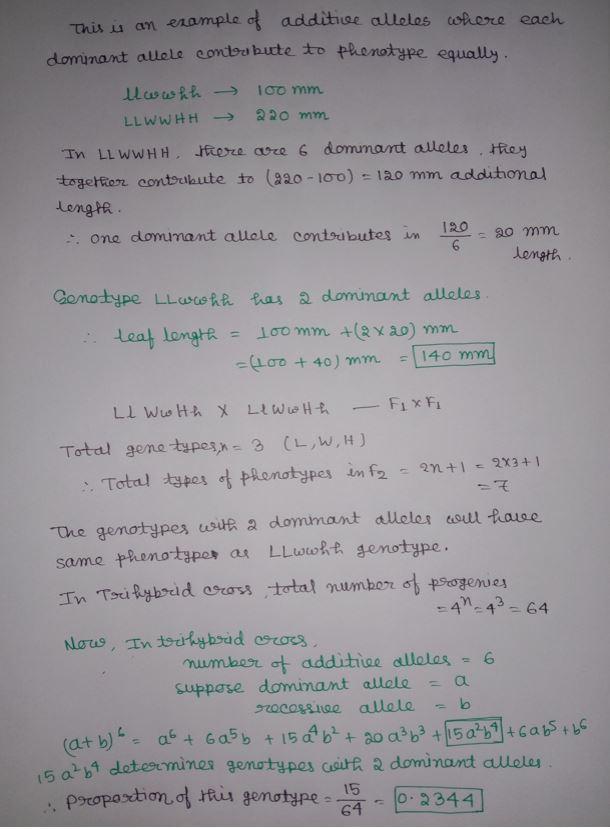 This is an example of additive alleles where each
dominant allele contribute to phenotype equally.
llwwhh → 100 mm
LLWWHH → 220 mm
In LLWWHH, there are 6 dominant alleles, they
together contribute to (220-100) = 120 mm additional
length.
∴ one dominant allele contributes in 120/6 = 20 mm
length.
Genotype LLwwhh has 2 dominant alleles.
∴ leaf length = 100 mm + (2 x 20) mm
= (100 + 40) mm = 140 mm
Ll Ww Hh X Ll Ww Hh — F1 x F1
Total gene types, n = 3 (L, W, H)
∴ Total types of phenotypes in F2 = 2n+1 = 2x3+1
= 7
The genotypes with 2 dominant alleles will have
same phenotype as LLwwhh genotype.
In Trihybrid cross, total number of progenies
= 4ⁿ = 4³ = 64
Now, In trihybrid cross,
number of additive alleles = 6
suppose dominant allele = a
recessive allele = b
(a+b)⁶ = a⁶ + 6a⁵b + 15a⁴b² + 20a³b³ + 15a²b⁴ + 6ab⁵ + b⁶
15a²b⁴ determines genotypes with 2 dominant alleles.
∴ Proportion of this genotype = 15/64 = 0.2344